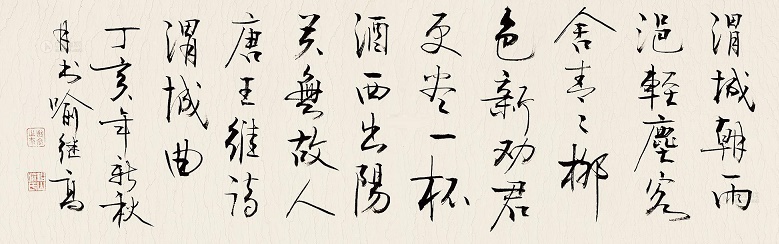 渭城朝雨
浥轻尘客
舍青々柳
色新劝君
更尽一杯
酒西出陽
关無故人
唐王維诗
渭城曲
丁亥年新秋
月书喻继高